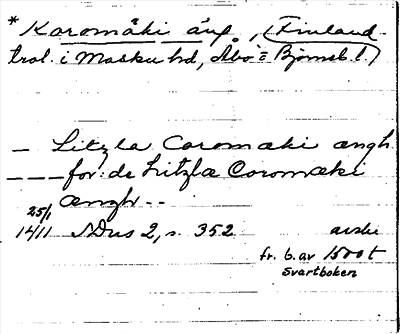 * Karomäki äng, (Finland
trol. i Masku hd, Åbo o Björneb. l.)
— Litzla Coromæki ængh
--- for: de Litzla Coromæki
ængh --
25/1
14/11 SDns 2, s. 352 avskr
fr. b. av 1500 t
Svartboken